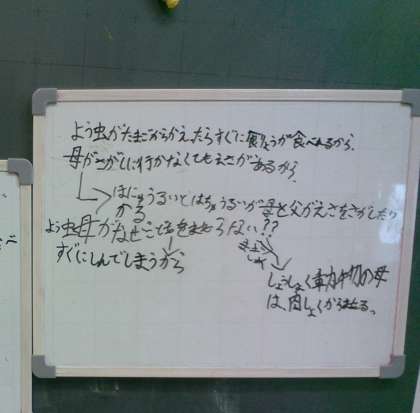 よう虫がたまごからかえったらすぐに食べれるから、
母がさがしに行かなくてもえさがあるから、
ほにゅうるいとはちゅうるいが母と父がえさをさがしたり
かる
よう虫母がなぜこて るない??
すぐにしんでしまうから
しょうしょく動物の母
は、肉しょくから る。